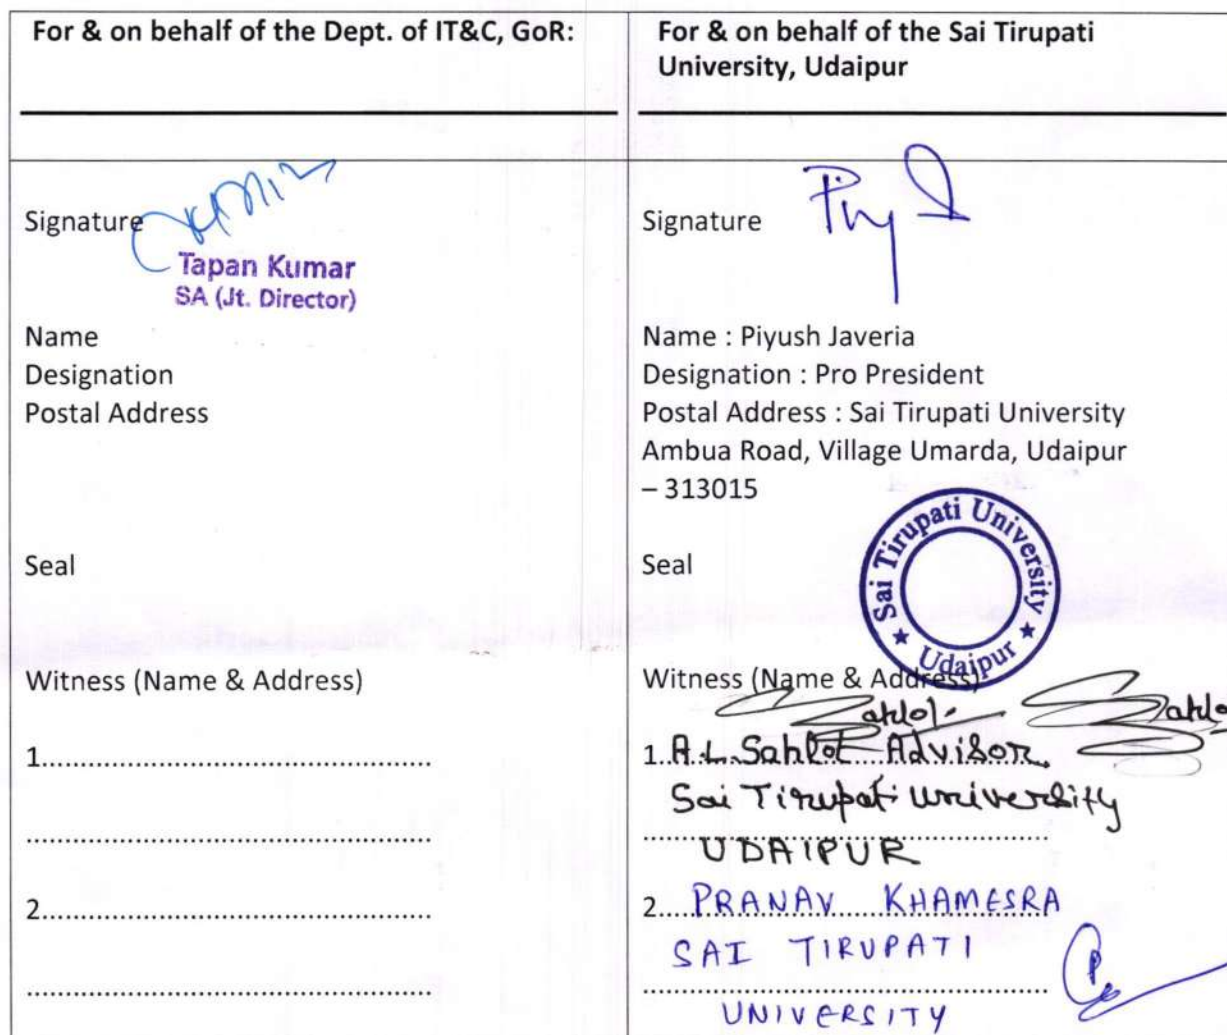 For & on behalf of the Dept. of IT&C, GoR:
Signature
Tapan Kumar
SA (Jt. Director)
Name
Designation
Postal Address
Seal
Witness (Name & Address)
1.......................................................
.......................................................
2.......................................................
.......................................................
For & on behalf of the Sai Tirupati
University, Udaipur
Signature
Name : Piyush Javeria
Designation : Pro President
Postal Address : Sai Tirupati University
Ambua Road, Village Umarda, Udaipur
– 313015
Seal
Sai Tirupati University
★ Udaipur ★
Witness (Name & Address)
1. A.L. Sahlot Advisor
Sai Tirupati University
UDAIPUR
2. PRANAV KHAMESRA
SAI TIRUPATI
UNIVERSITY